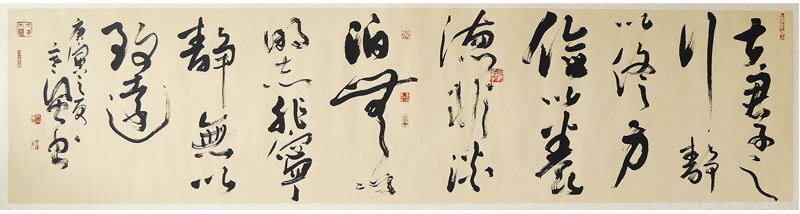 夫君子之
行静
以修身
儉以養
德非淡
泊無以
明志非寧
靜無以
致遠
庚寅之夏
書